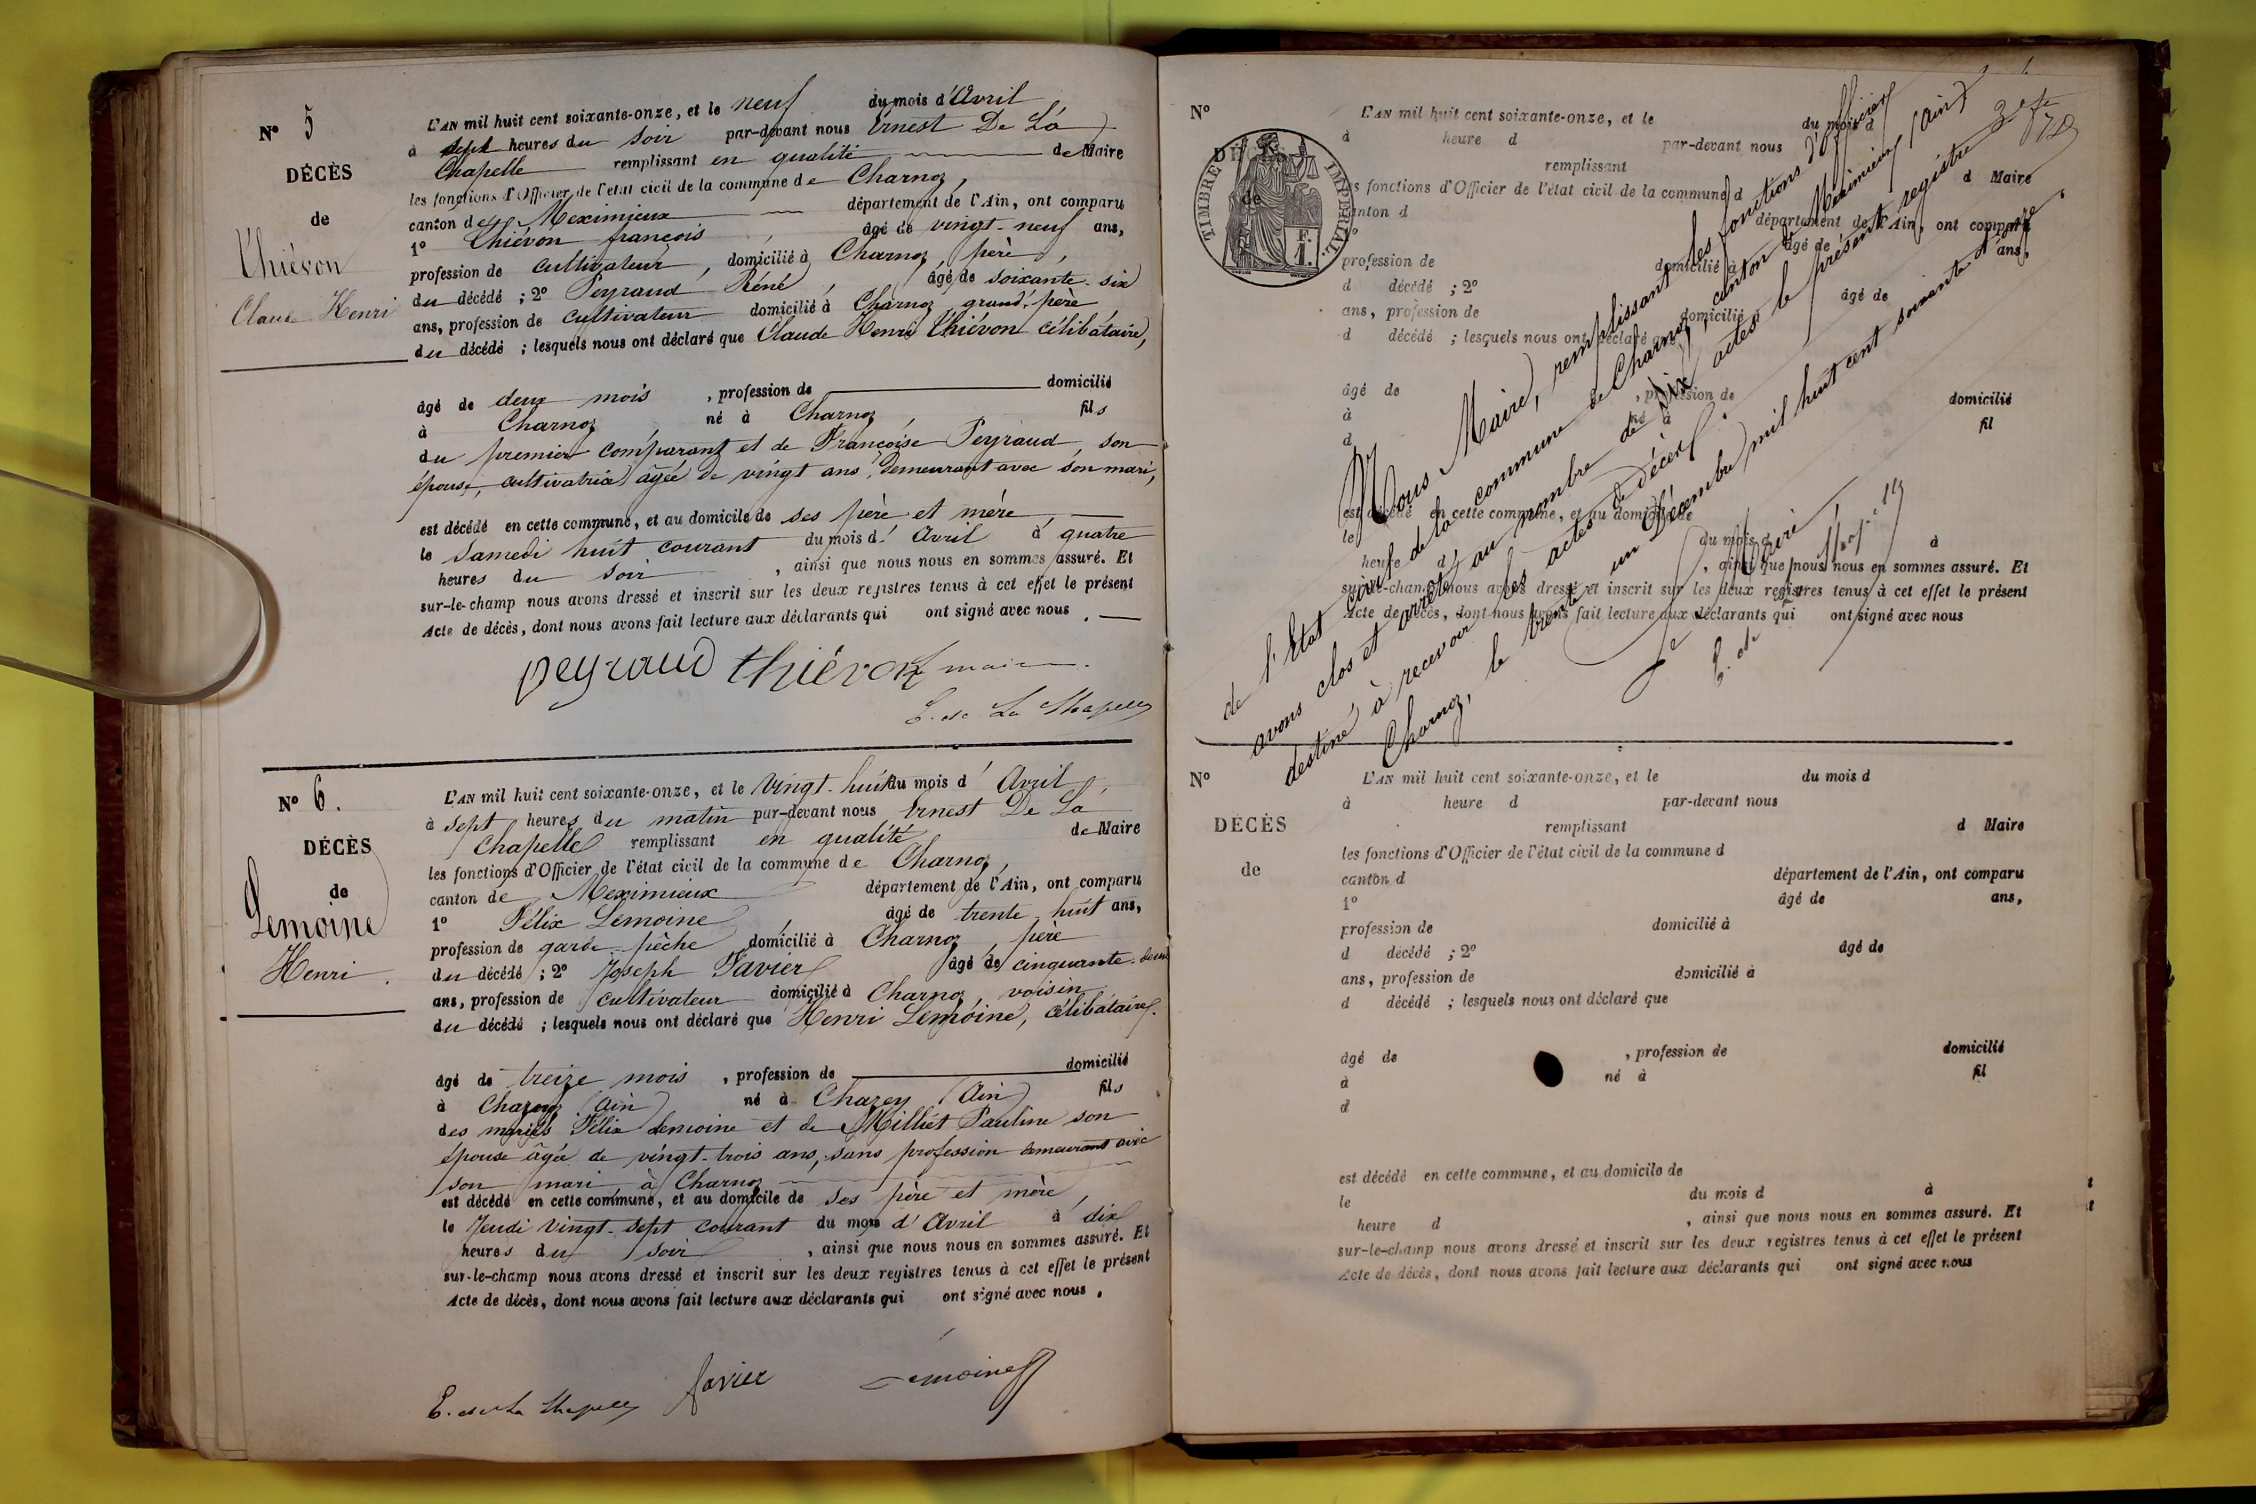 N° 5
DÉCÈS
de
Thiévon
Claude Henri
L'AN mil huit cent soixante-onze, et le neuf du mois d'Avril
à sept heures du soir par-devant nous Ernest De La
Chapelle remplissant en qualité de Maire
les fonctions d'Officier de l'état civil de la commune de Charnoz,
canton de Meximieux département de l'Ain, ont comparu
1° Thiévon françois, âgé de vingt-neuf ans,
profession de cultivateur, domicilié à Charnoz, père,
du décédé ; 2° Peyraud Réné, âgé de soixante-six
ans, profession de cultivateur domicilié à Charnoz, grand'père
du décédé ; lesquels nous ont déclaré que Claude Henri Thiévon célibataire,
âgé de deux mois, profession de domicilié
à Charnoz né à Charnoz, fils
du premier comparant et de Françoise Peyraud, son
épouse, cultivatrice âgée de vingt ans, demeurant avec son mari,
est décédé en cette commune, et au domicile de ses père et mère,
le samedi huit courant du mois d'Avril à quatre
heures du soir, ainsi que nous nous en sommes assuré. Et
sur-le-champ nous avons dressé et inscrit sur les deux registres tenus à cet effet le présent
Acte de décès, dont nous avons fait lecture aux déclarants qui ont signé avec nous.
peyraud thiévon maire
E. de La Chapelle
N° 6.
DÉCÈS
de
Lemoine
Henri.
L'AN mil huit cent soixante-onze, et le vingt-huit du mois d'Avril,
à sept heures du matin par-devant nous Ernest De La
Chapelle remplissant en qualité de Maire
les fonctions d'Officier de l'état civil de la commune de Charnoz,
canton de Meximieux département de l'Ain, ont comparu
1° Félix Lemoine, âgé de trente-huit ans,
profession de garde-pêche domicilié à Charnoz, père
du décédé ; 2° Joseph Favier âgé de cinquante-deux
ans, profession de cultivateur domicilié à Charnoz, voisin
du décédé ; lesquels nous ont déclaré que Henri Lemoine, célibataire.
âgé de treize mois, profession de domicilié
à Charnoz (Ain) né à Chazey (Ain) fils
des mariés Félix Lemoine et de Milliét Pauline son
épouse âgée de vingt-trois ans, sans profession demeurant avec
son mari, à Charnoz
est décédé en cette commune, et au domicile de ses père et mère,
le Jeudi vingt-sept courant du mois d'Avril à dix
heures du soir, ainsi que nous nous en sommes assuré. Et
sur-le-champ nous avons dressé et inscrit sur les deux registres tenus à cet effet le présent
Acte de décès, dont nous avons fait lecture aux déclarants qui ont signé avec nous.
E. de La Chapelle favier Lemoine
N°
DÉCÈS
de
TIMBRE IMPÉRIAL
F.
1.
L'AN mil huit cent soixante-onze, et le du mois d
à heure d par-devant nous
remplissant d Maire
les fonctions d'Officier de l'état civil de la commune d
canton d département de l'Ain, ont comparu
1° âgé de ans,
profession de domicilié à
d décédé ; 2° âgé de
ans, profession de domicilié à
d décédé ; lesquels nous ont déclaré
âgé de , profession de domicilié
à né à fil
d
est décédé en cette commune, et au domicile de
le du mois d à
heure d , ainsi que nous nous en sommes assuré. Et
sur-le-champ nous avons dressé et inscrit sur les deux registres tenus à cet effet le présent
Acte de décès, dont nous avons fait lecture aux déclarants qui ont signé avec nous
Nous Maire, remplissant les fonctions d'officier
de l'Etat civil de la commune de Charnoz, canton de Meximieux (Ain)
avons clos et arrêté au nombre de six actes le présent registre
destiné à recevoir les actes de décès.
Charnoz, le trente un Décembre mil huit cent soixante et onze.
Le Maire
E. de
N°
DÉCÈS
de
L'AN mil huit cent soixante-onze, et le du mois d
à heure d par-devant nous
remplissant d Maire
les fonctions d'Officier de l'état civil de la commune d
canton d département de l'Ain, ont comparu
1° âgé de ans,
profession de domicilié à
d décédé ; 2° âgé de
ans, profession de domicilié à
d décédé ; lesquels nous ont déclaré que
âgé de , profession de domicilié
à né à fil
d
est décédé en cette commune, et au domicile de
le du mois d à
heure d , ainsi que nous nous en sommes assuré. Et
sur-le-champ nous avons dressé et inscrit sur les deux registres tenus à cet effet le présent
Acte de décès, dont nous avons fait lecture aux déclarants qui ont signé avec nous